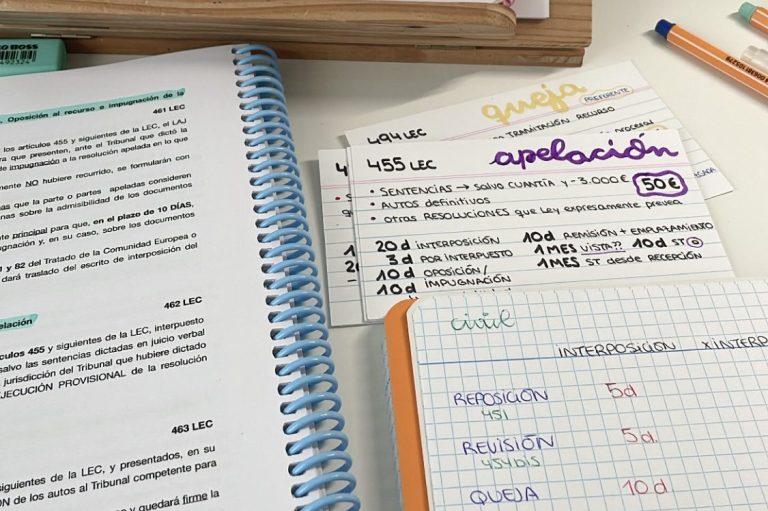 BOSS
492324
. Oposición al recurso e impugnación de la
461 LEC
los artículos 455 y siguientes de la LEC, el LAJ
ra que presenten, ante el Tribunal que dictó la
de impugnación a la resolución apelada en lo que
mente NO hubiere recurrido, se formularán con
as que la parte o partes apeladas consideren
nas sobre la admisibilidad de los documentos
nte principal para que, en el plazo de 10 DÍAS,
ugnación y, en su caso, sobre los documentos
1 y 82 del Tratado de la Comunidad Europea o
dará traslado del escrito de interposición del
462 LEC
elación
culos 455 y siguientes de la LEC, interpuesto
salvo las sentencias dictadas en juicio verbal
jurisdicción del Tribunal que hubiere dictado
EJECUCIÓN PROVISIONAL de la resolución
463 LEC
siguientes de la LEC, y presentados, en su
ÓN de los autos al Tribunal competente para
o y quedará firme la
queja
PREFERENTE
494 LEC
TRAMITACIÓN RECURSO
procesal
455 LEC
apelación
• SENTENCIAS → SALVO CUANTÍA y - 3.000€
50€
• AUTOS definitivos
• otras RESOLUCIONES que Ley expresamente prevea
20d INTERPOSICIÓN
3d POR INTERPUESTO
10d OPOSICIÓN/
10d IMPUGNACIÓN
10d REMISIÓN + EMPLAZAMIENTO
1MES VISTA?? 10d ST
1MES ST desde RECEPCIÓN
civil
INTERPOSICIÓN X INTERP
REPOSICIÓN 5d
451
REVISIÓN 5d.
454 bis
QUEJA 10d